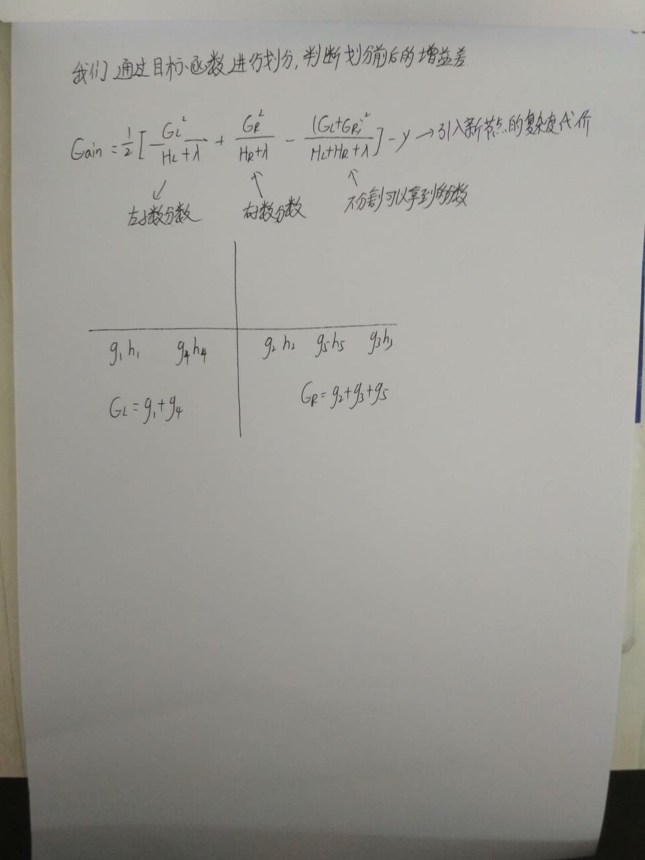 我们通过目标函数进行划分,判断划分前后的增益差
Gain = 1/2 [ GL²/(HL+λ) + GR²/(HR+λ) − (GL+GR)²/(HL+HR+λ) ] − γ → 引入新节点的复杂度代价
左子数分数 右子数分数 不分割可以拿到的分数
g₁h₁ g₄h₄ g₂h₂ g₅h₅ g₃h₃
GL = g₁+g₄ GR = g₂+g₃+g₅